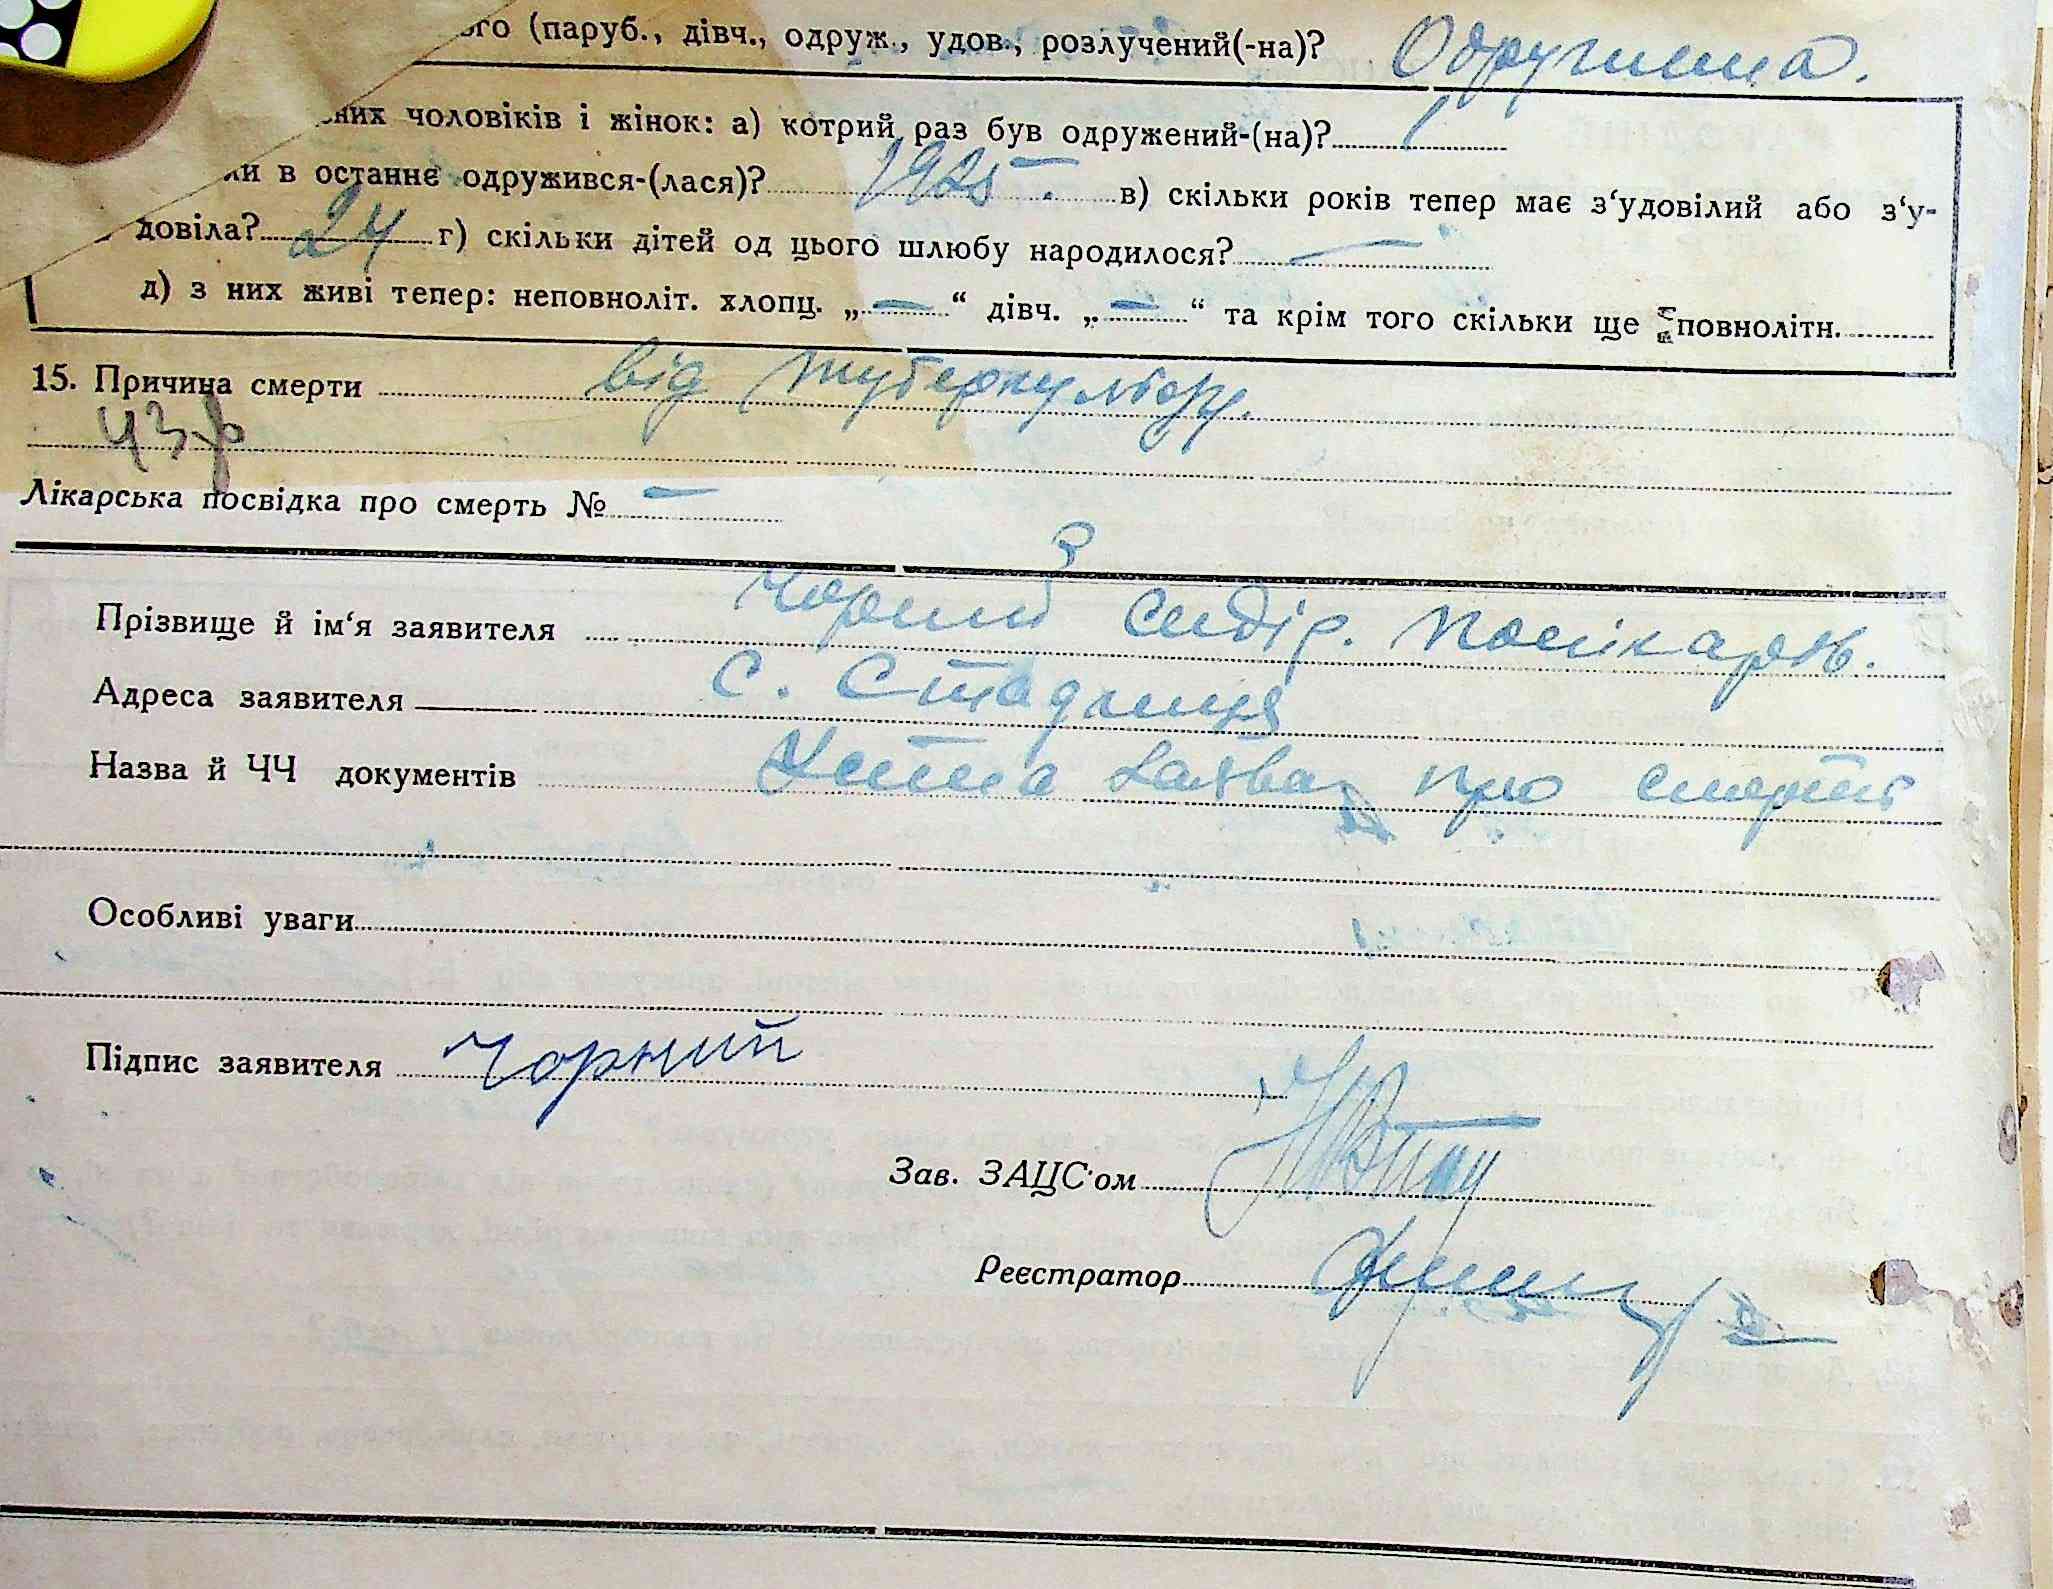 ого (паруб., дівч., одруж., удов., розлучений(-на)? Одружена.
них чоловіків і жінок: а) котрий раз був одружений-(на)? 1
ли в останнє одружився-(лася)? 1925 в) скільки років тепер має з‘удовілий або з‘у-
довіла? 24 г) скільки дітей од цього шлюбу народилося? —
д) з них живі тепер: неповноліт. хлопц. „ — “ дівч. „ — “ та крім того скільки ще повнолітн.
15. Причина смерти від туберкульозу.
43
Лікарська посвідка про смерть № —
З
Прізвище й ім‘я заявителя Чорний Сидір.
Адреса заявителя С. Стадниця
Назва й ЧЧ документів Устна заява про смерть
Особливі уваги
Підпис заявителя Чорний
Зав. ЗАЦС‘ом
Реєстратор